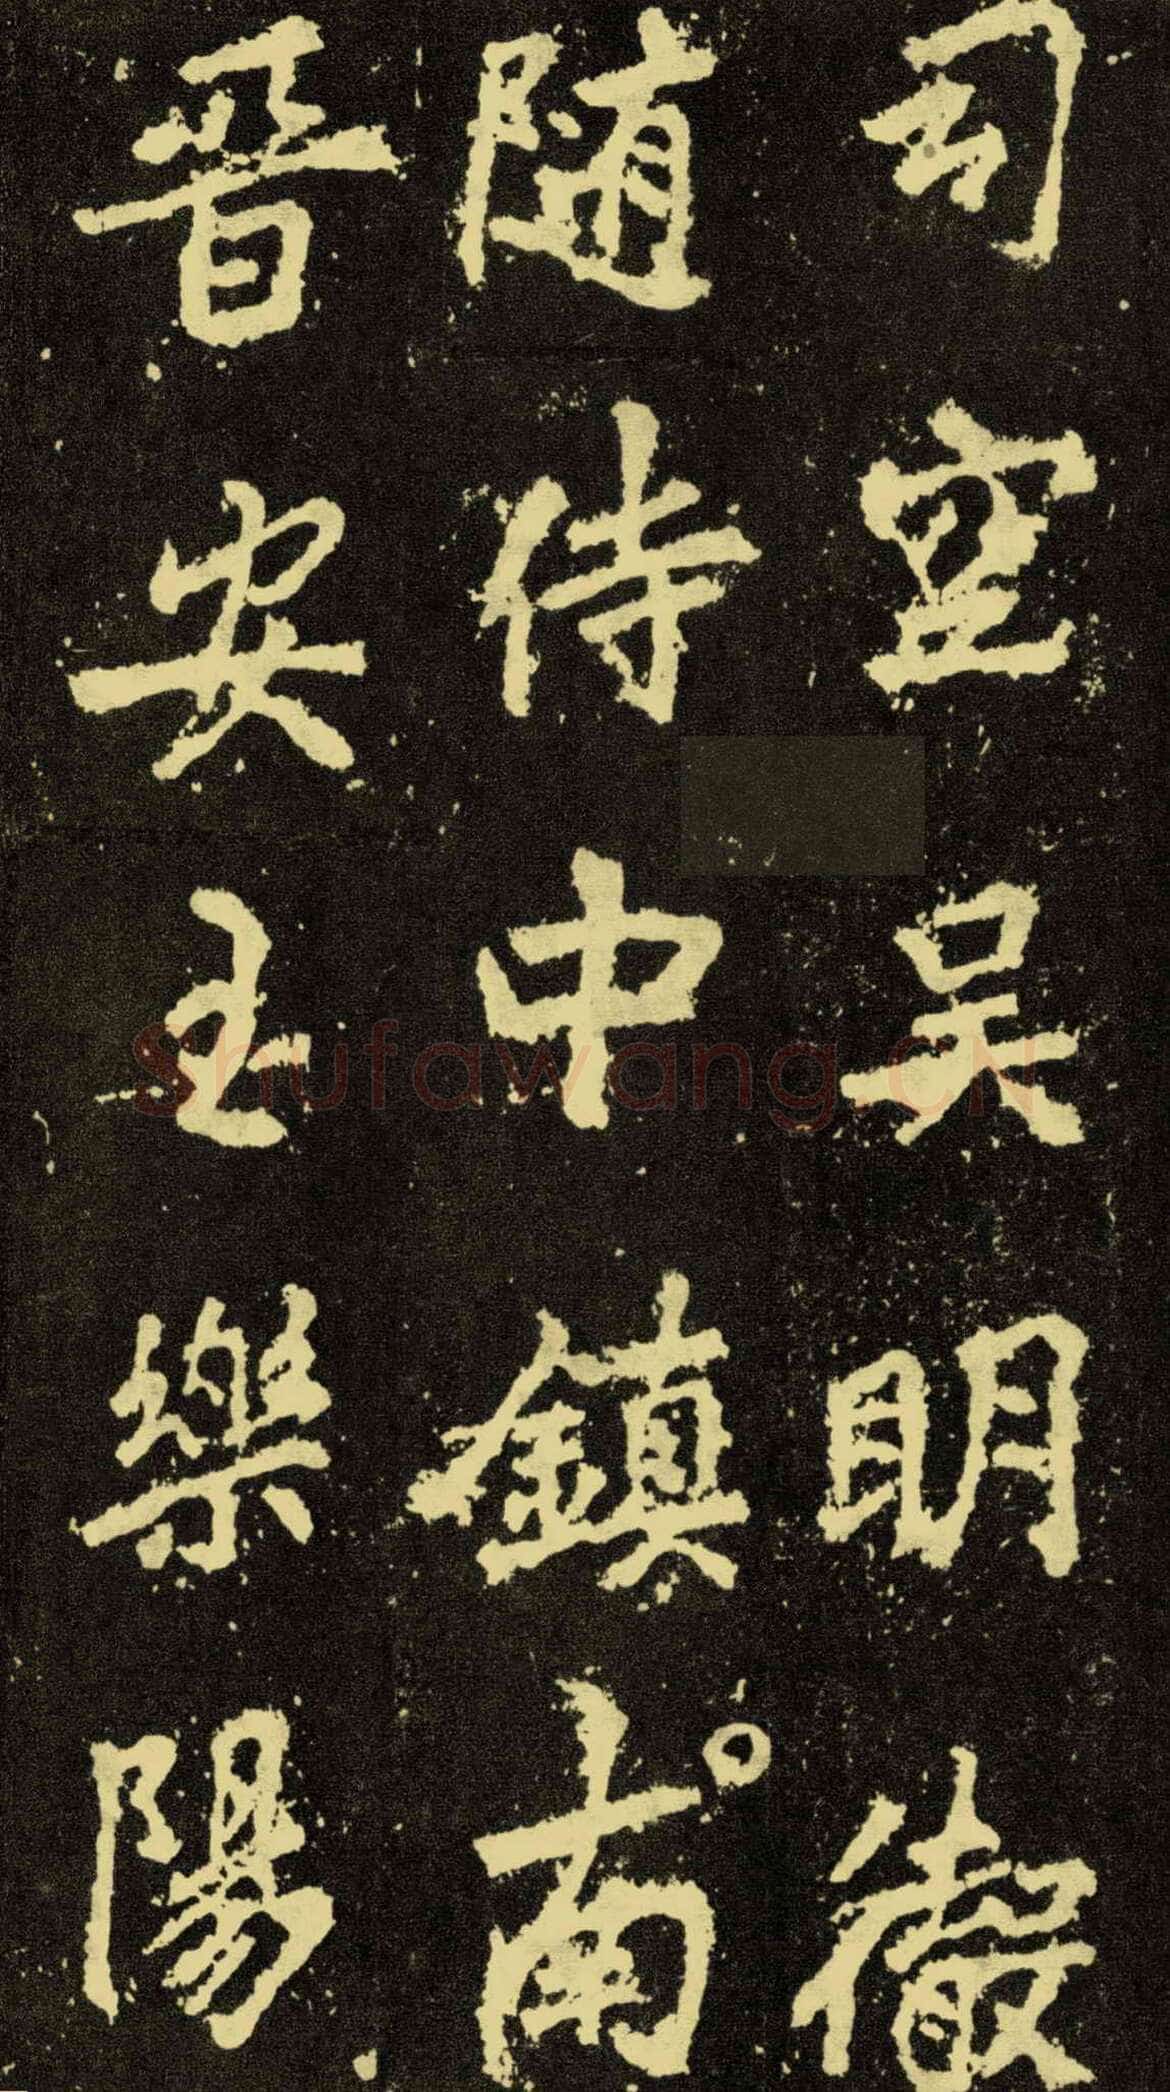 司空吴明徹
随侍中鎮南
晉安王樂陽
Shufawang.CN